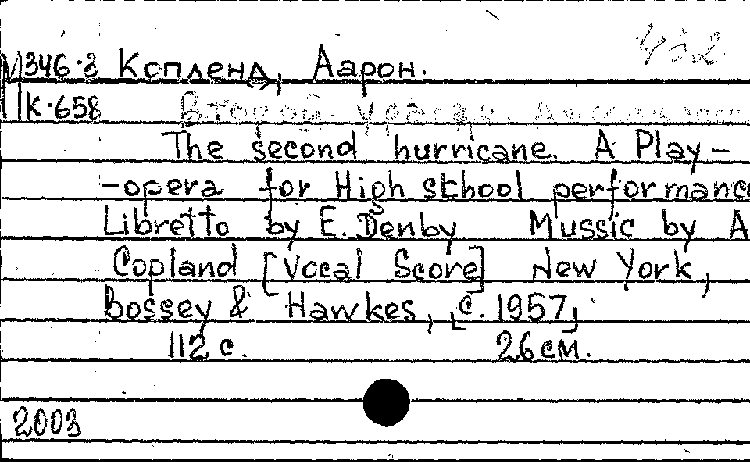 М346.3 Копленд, Аарон.
К.658 Второй ураган.
The second hurricane. A Play-
-opera for High sthool performanc
Libretto by E. Denby Mussic by A
Copland [Vocal Score] New York,
Bossey & Hawkes, [c. 1957]
112 с. 26 см.
2003